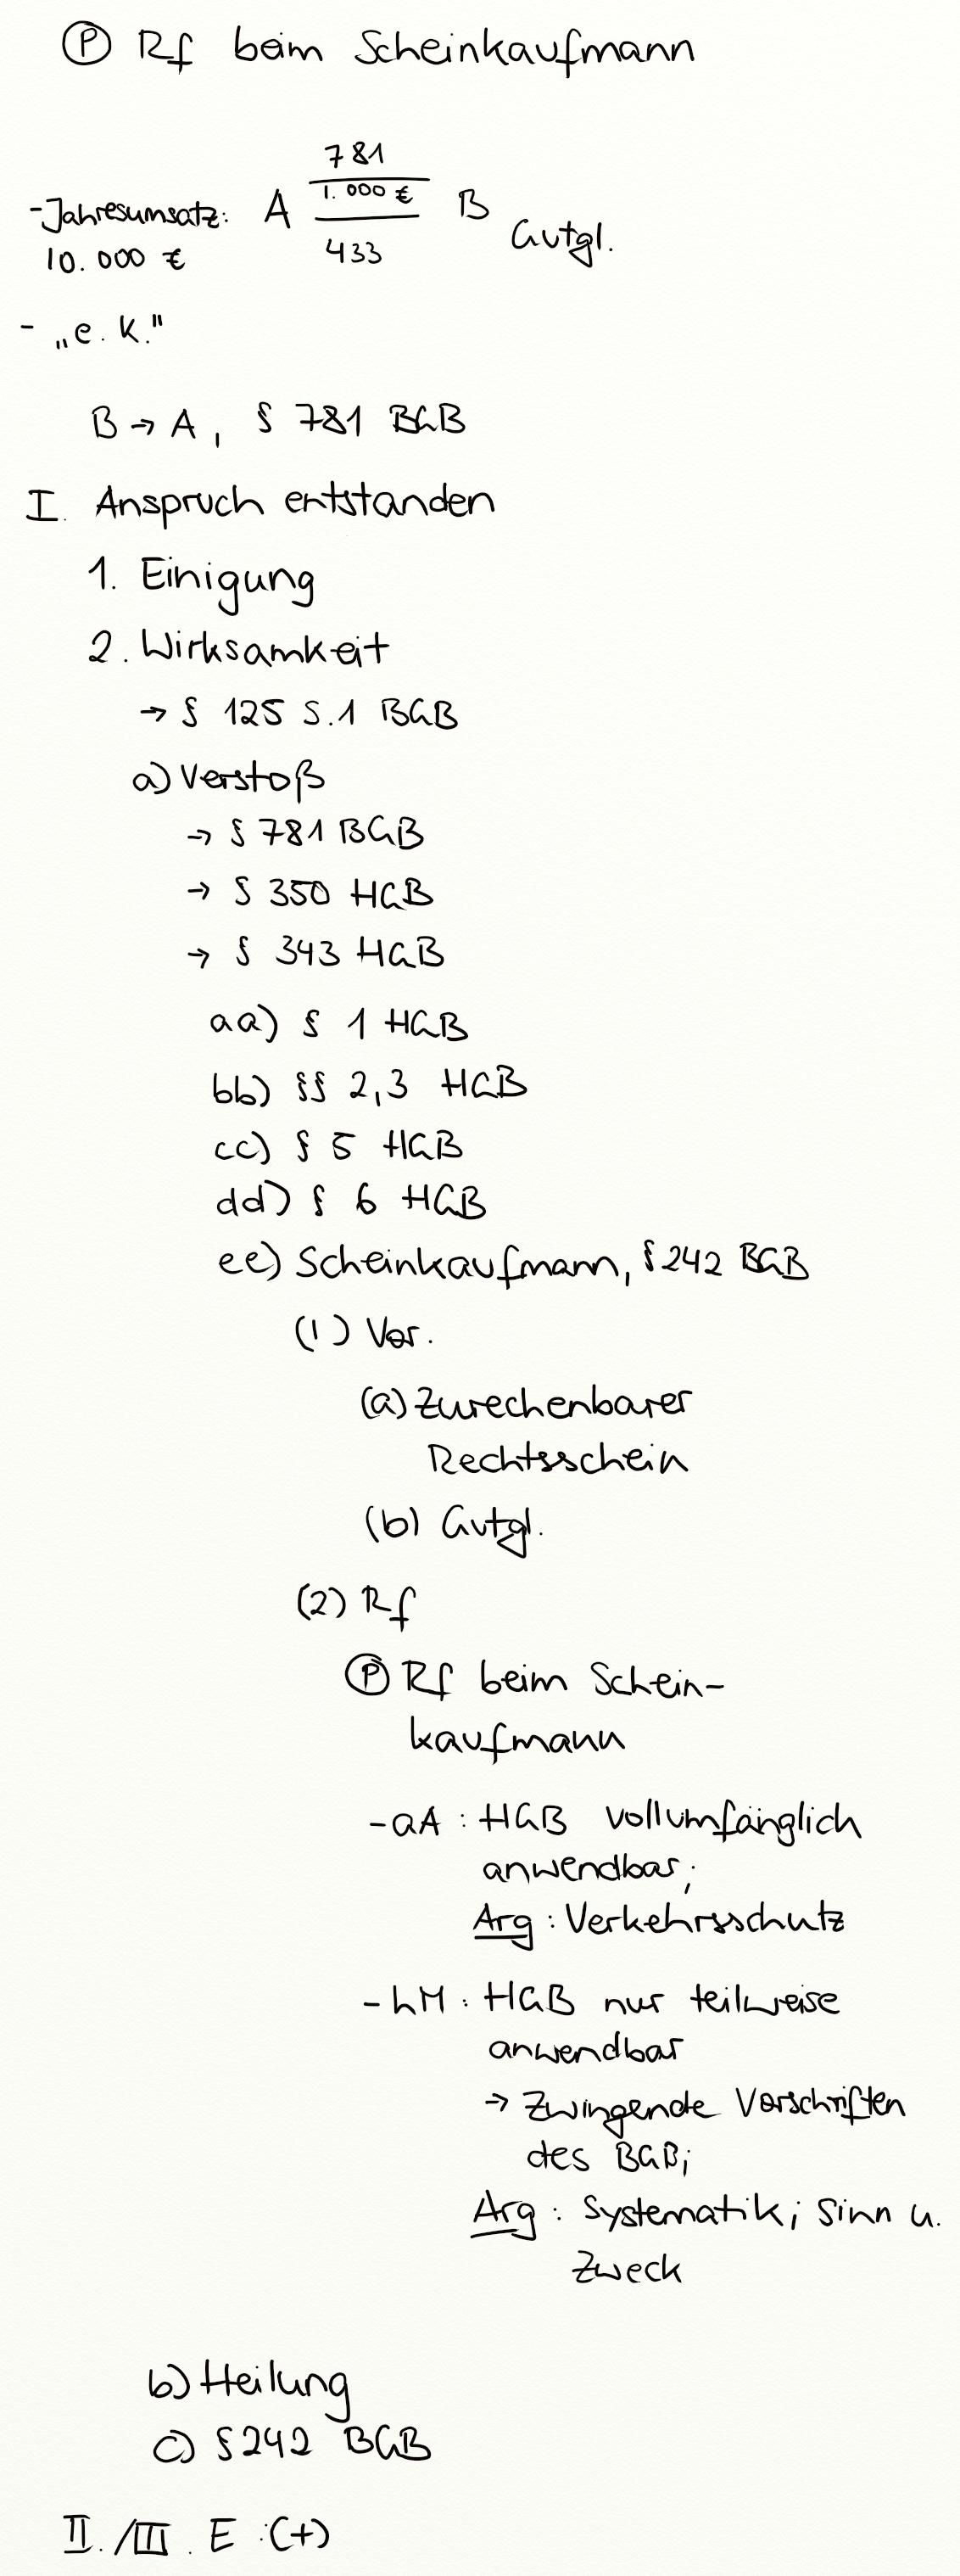 Ⓟ Rf beim Scheinkaufmann
781
- Jahresumsatz: A 1.000 € B Gutgl.
10.000 € 433
- „e.K."
B → A, § 781 BGB
I. Anspruch entstanden
1. Einigung
2. Wirksamkeit
→ § 125 S.1 BGB
a) Verstoß
→ § 781 BGB
→ § 350 HGB
→ § 343 HGB
aa) § 1 HGB
bb) §§ 2,3 HGB
cc) § 5 HGB
dd) § 6 HGB
ee) Scheinkaufmann, § 242 BGB
(1) Vor.
(a) Zurechenbarer
Rechtsschein
(b) Gutgl.
(2) Rf
Ⓟ Rf beim Schein-
kaufmann
- aA : HGB vollumfänglich
anwendbar;
Arg : Verkehrsschutz
- hM : HGB nur teilweise
anwendbar
→ Zwingende Vorschriften
des BGB;
Arg : Systematik; Sinn u.
Zweck
b) Heilung
c) § 242 BGB
II./III. E : (+)